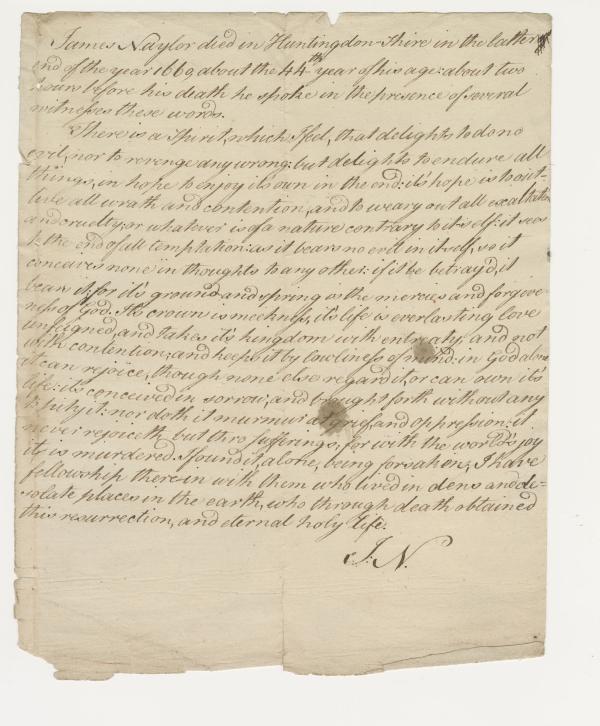 James Naylor died in Huntingdon-Shire in the latter
end of the year 1660, about the 44th year of his age: about two
hours before his death he spoke in the presence of several
witnesses these words.
There is a Spirit, which I feel, that delights to do no
evil, nor to revenge any wrong: but delights to endure all
things, in hope to enjoy its own in the end: it's hope is to out-
live all wrath and contention, and to weary out all exaltation
and cruelty; or whatever is of a nature contrary to itself: it sees
to the end of all temptation: as it bears no evil in itself, so it
conceives none in thoughts to any other: if it be betray'd, it
bears it: for it's ground and spring is the mercies and forgive-
ness of God. Its crown is meekness, it's life is everlasting love
unfeigned, and takes it's kingdom with entreaty, and not
with contention, and keeps it by lowliness of mind: in God alone
it can rejoice, though none else regard it, or can own it's
life: its conceived in sorrow, and brought forth without any
to pity it: nor doth it murmur at grief, and oppression: it
never rejoiceth, but thro sufferings; for with the world's joy
it is murdered. I found it, alone, being forsaken; I have
fellowship therein with them who lived in dens and de-
solate places in the earth, who through death obtained
this resurrection, and eternal holy life.
J: N.